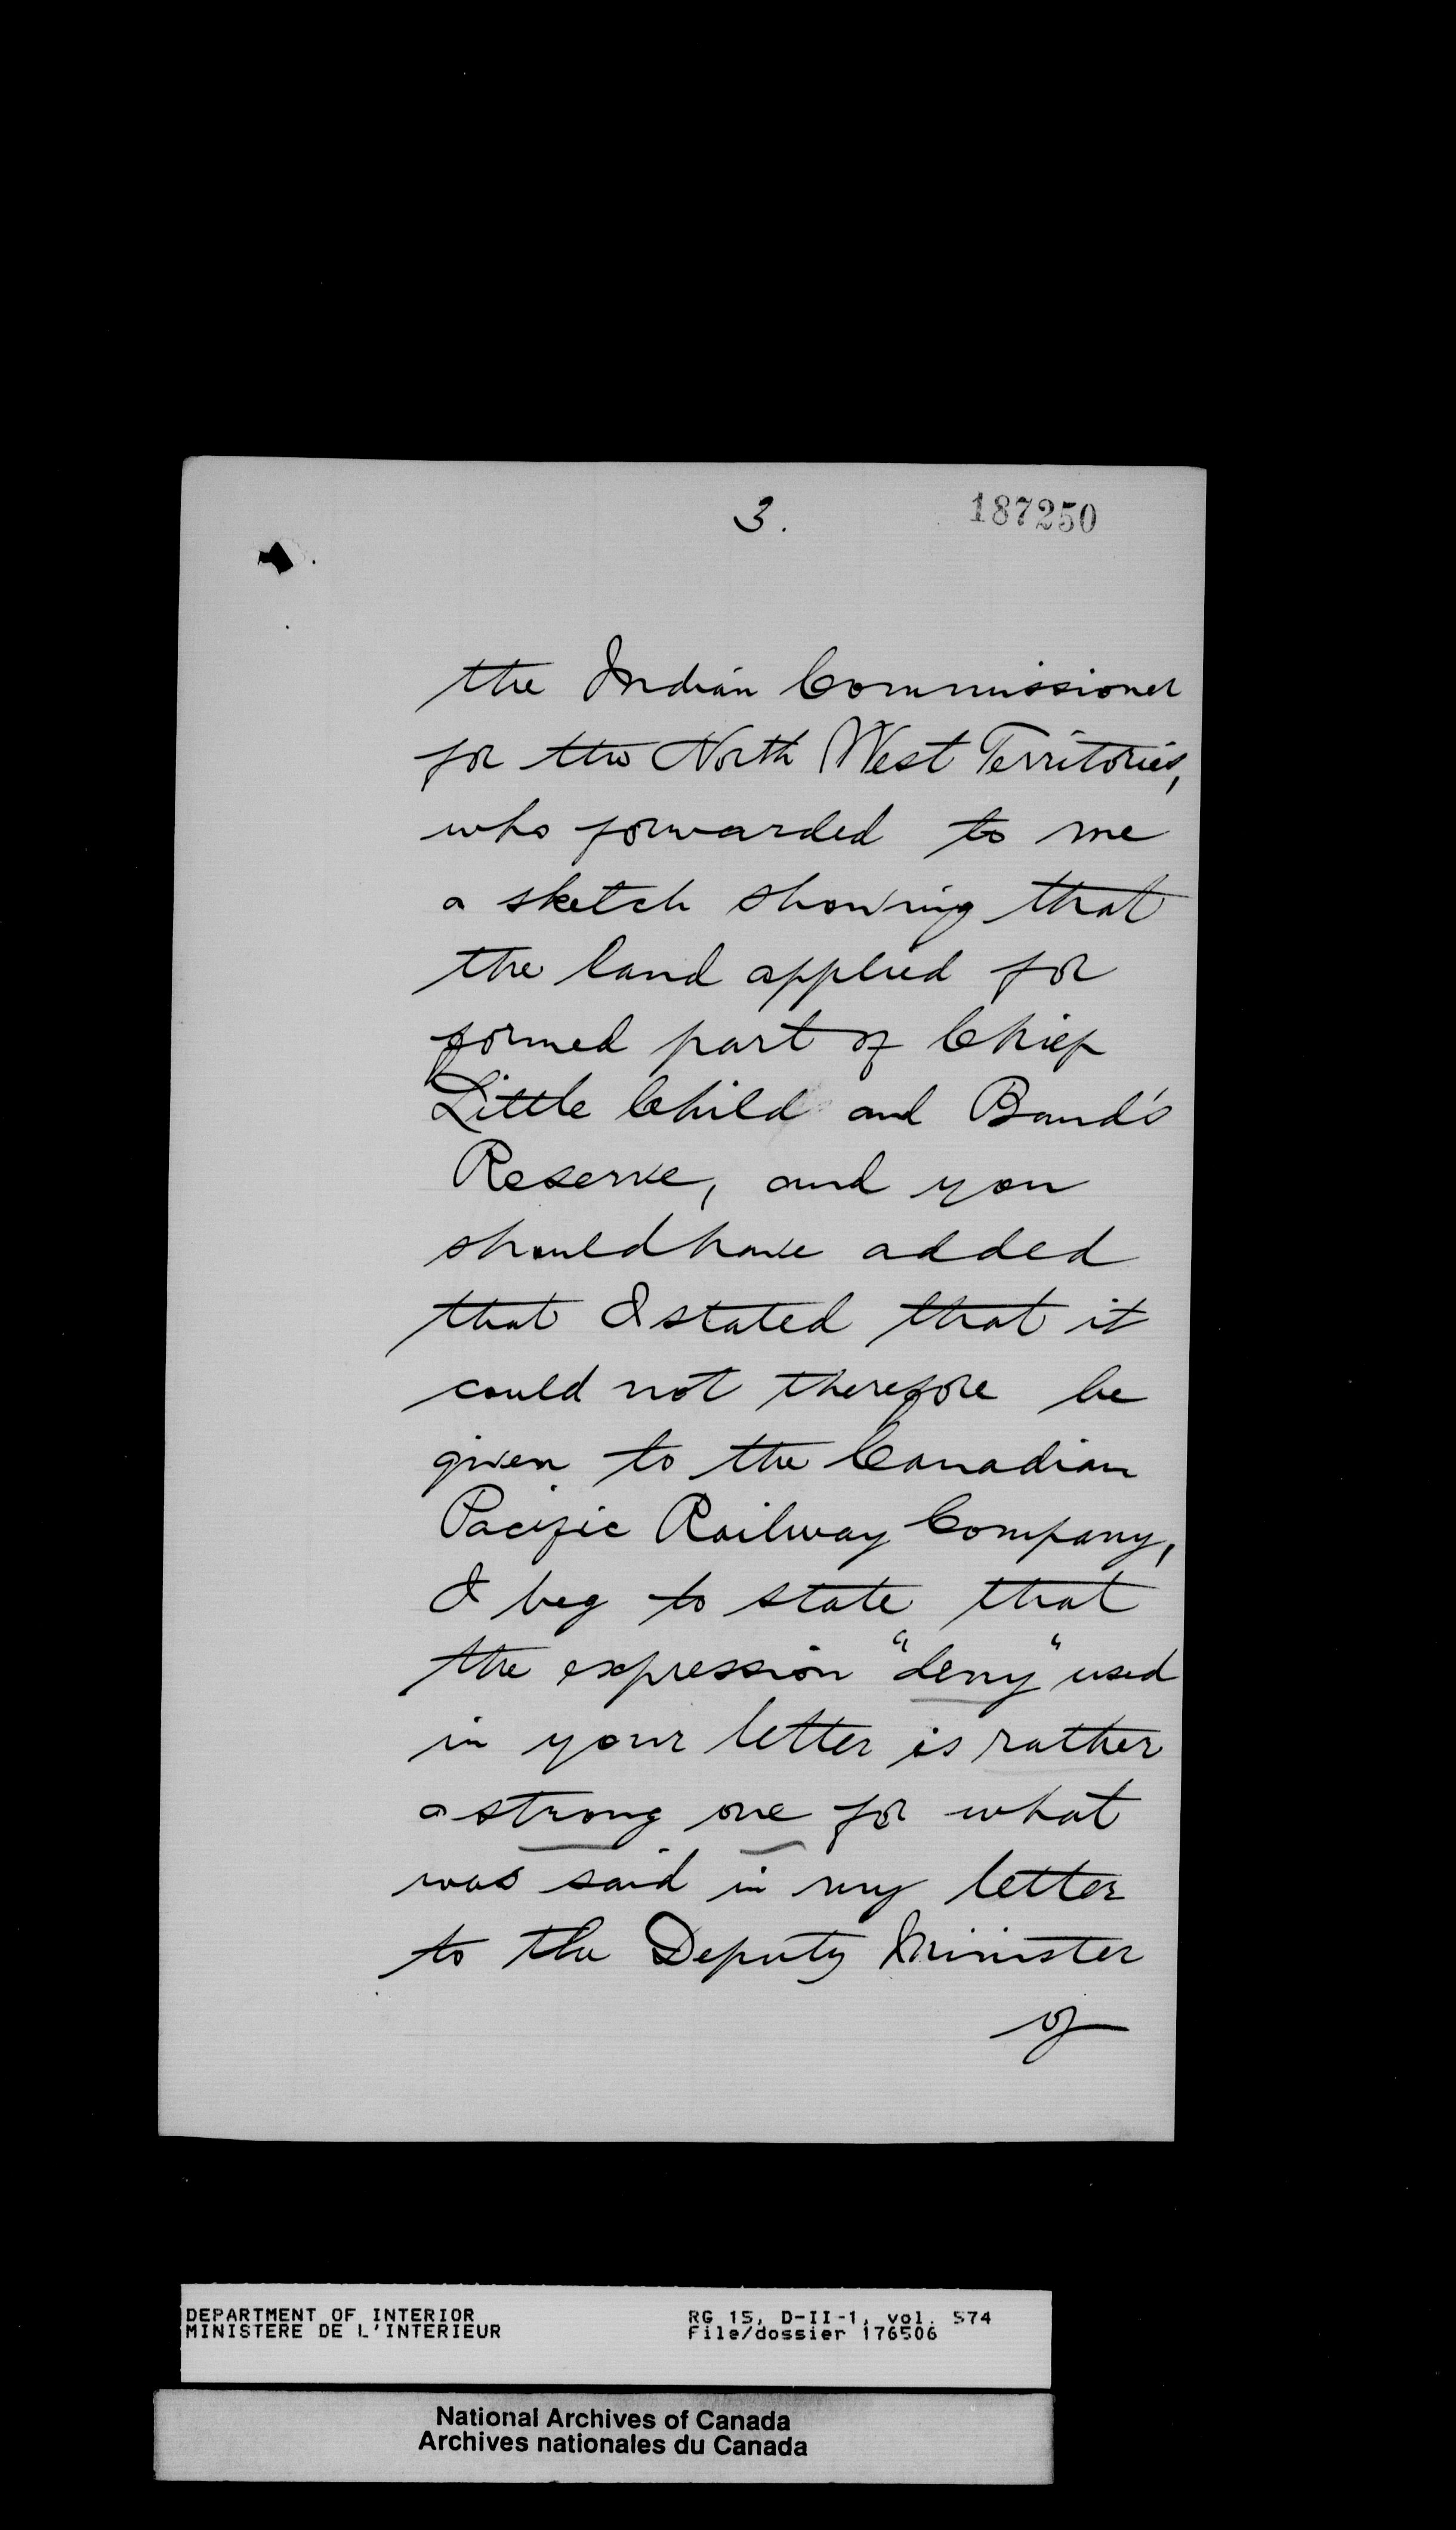 3.
187250
the Indian Commissioner
for the North West Territories,
who forwarded to me
a sketch showing that
the land applied for
formed part of Chief
Little Child and Band's
Reserve, and you
should have added
that I stated that it
could not therefore be
given to the Canadian
Pacific Railway Company,
I beg to state that
the expression "deny" used
in your letter is rather
a strong one for what
was said in my letter
to the Deputy Minister
of
DEPARTMENT OF INTERIOR RG 15, D-II-1, vol. 574
MINISTERE DE L'INTERIEUR File/dossier 176506
National Archives of Canada
Archives nationales du Canada